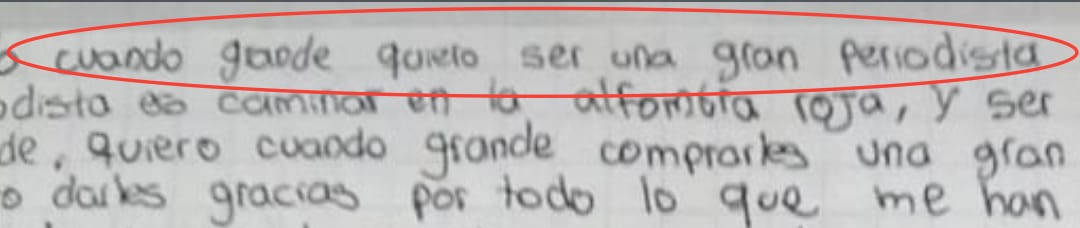 o cuando gaode quiero ser una gran Periodista
odista es caminar en la alfombra roja, y ser
de, quiero cuando grande comprarles una gran
o darles gracias por todo lo que me han